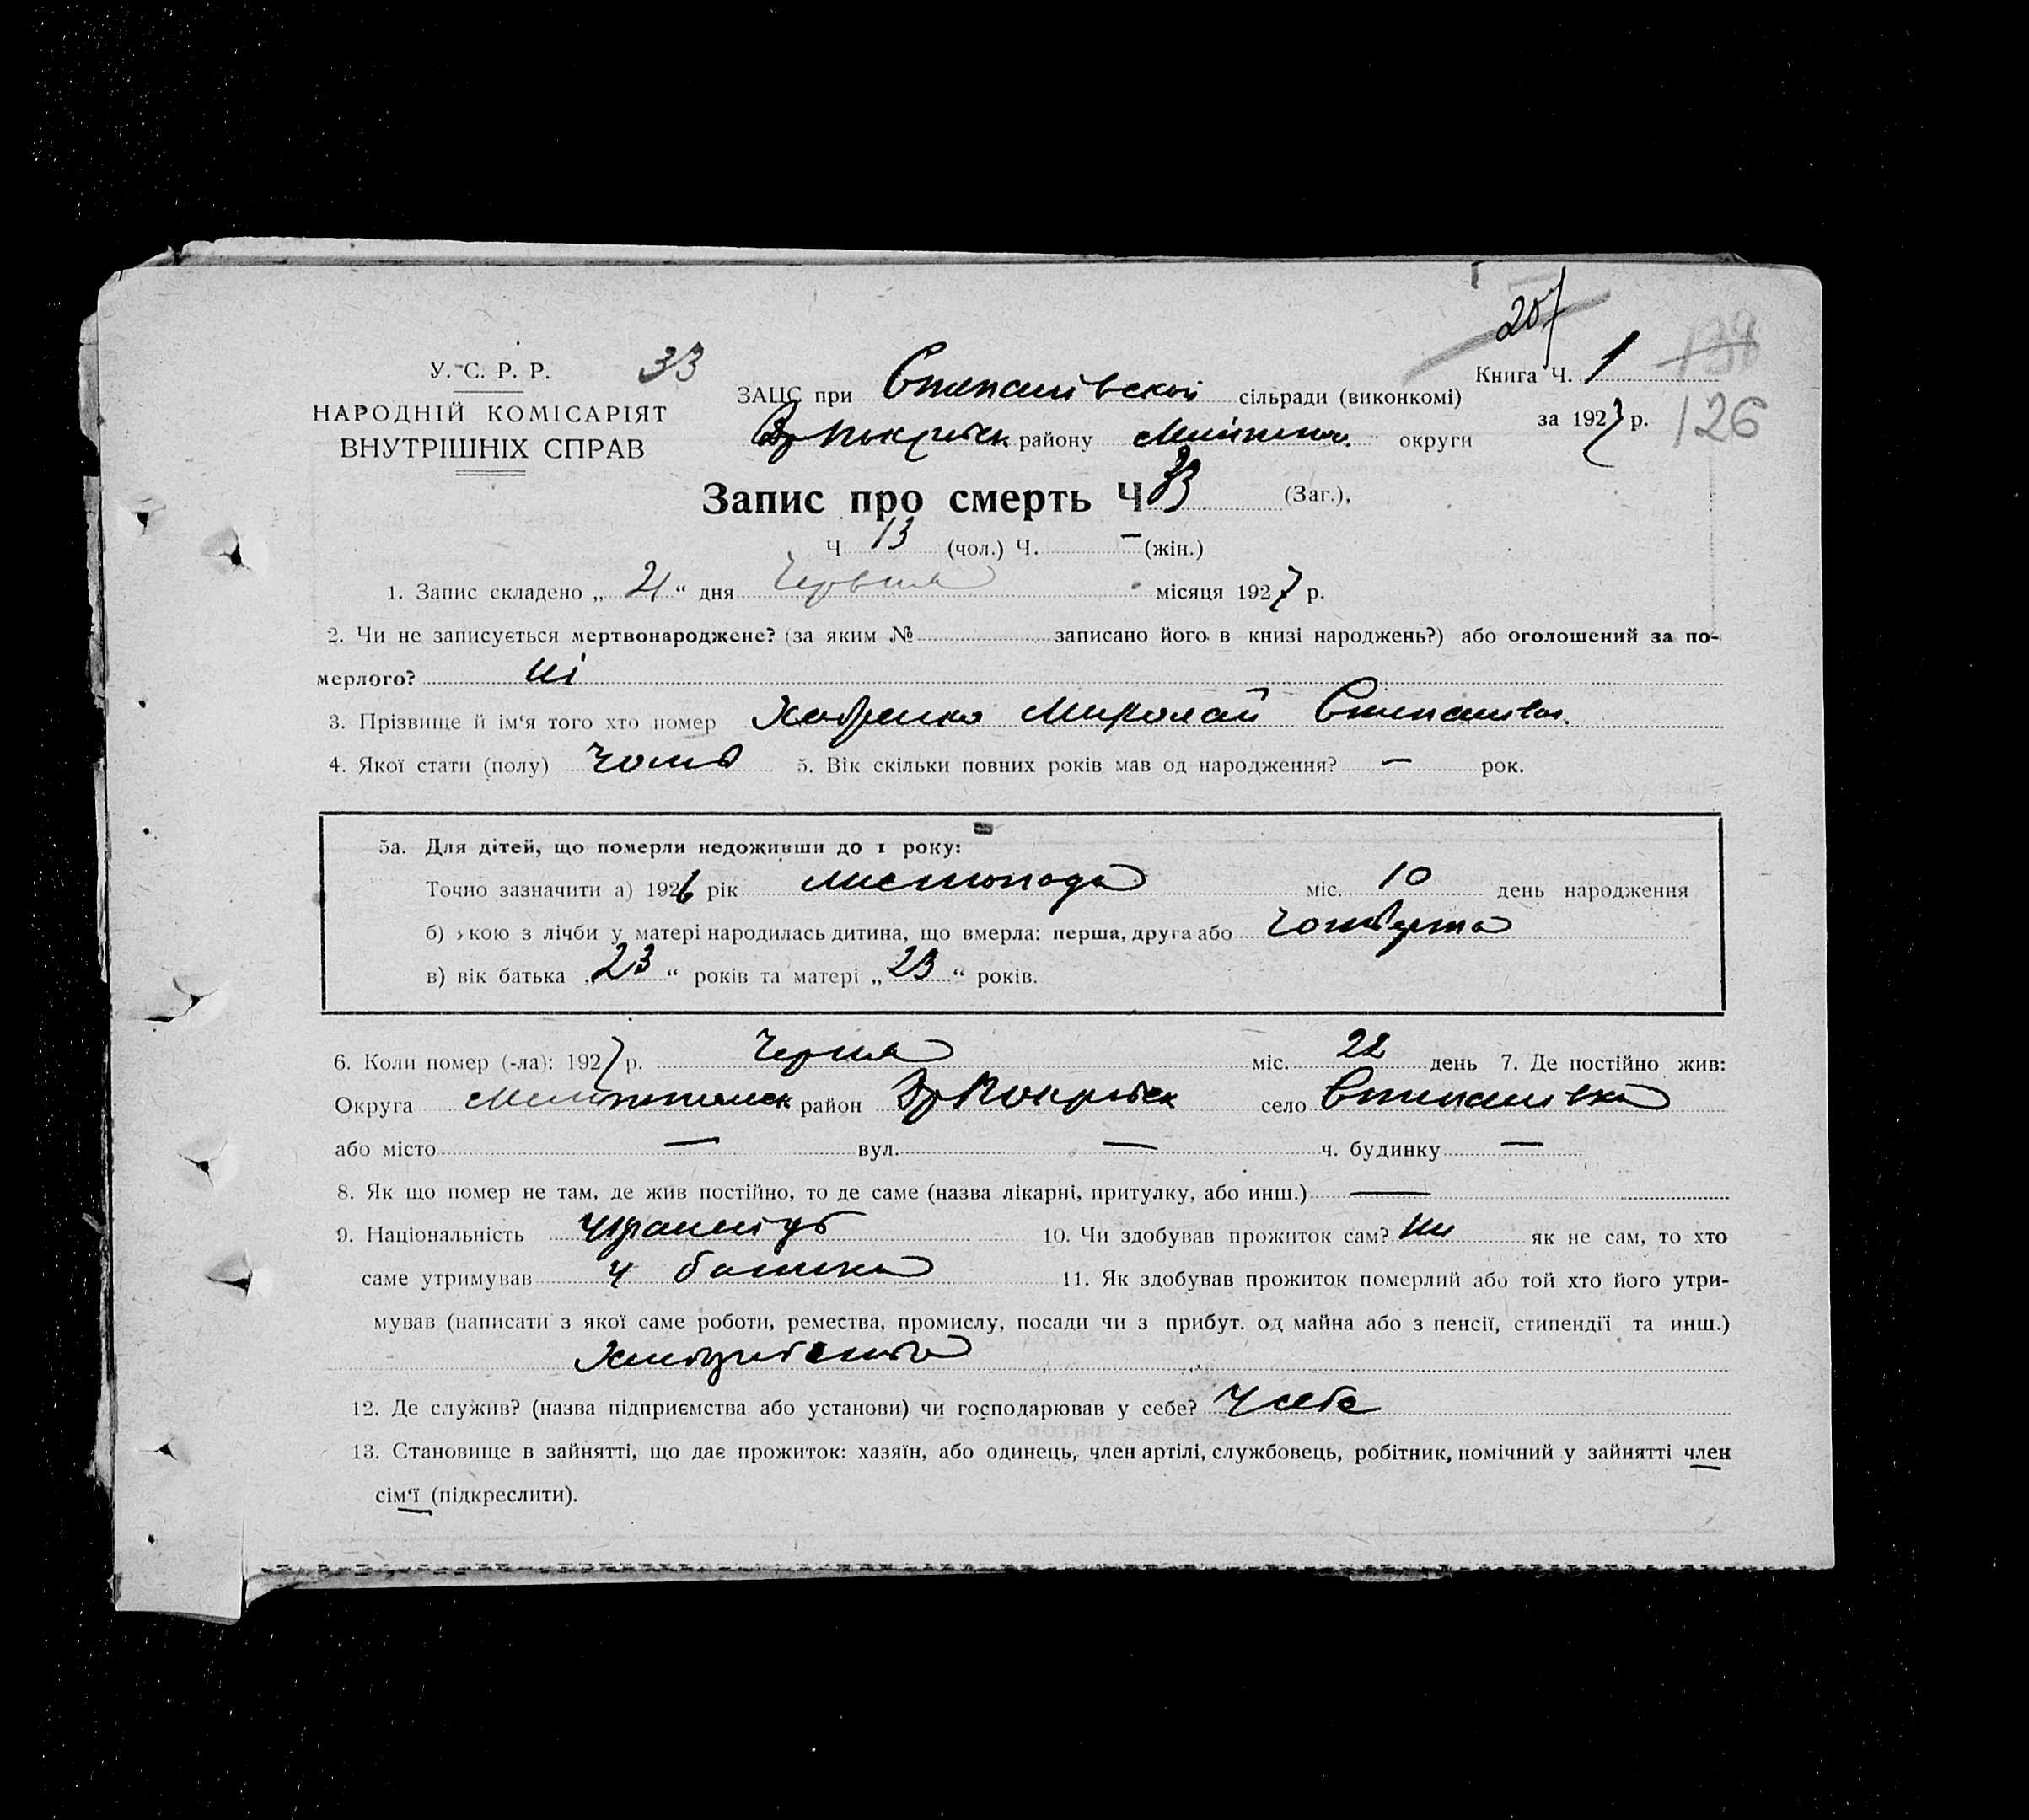 207
У. С. Р. Р.
33
ЗАЦС при Степанівській сільради (виконкомі)
Книга Ч. 1
138
НАРОДНІЙ КОМІСАРІЯТ
ВНУТРІШНІХ СПРАВ
району округи
за 1927 р.
126
Запис про смерть Ч 33 (Заг.),
Ч 13 (чол.) Ч. — (жін.)
1. Запис складено „ 21 “ дня Червня місяця 1927 р.
2. Чи не записується мертвонароджене? (за яким № записано його в книзі народжень?) або оголошений за по-
мерлого? ні
3. Прізвище й ім‘я того хто помер Миколай
4. Якої стати (полу) 5. Вік скільки повних років мав од народження? — рок.
5а. Для дітей, що померли недоживши до 1 року:
Точно зазначити а) 1926 рік листопада міс. 10 день народження
б) кою з лічби у матері народилась дитина, що вмерла: перша, друга або четверта
в) вік батька „ 23 “ років та матері „ 23 “ років.
6. Коли помер (-ла): 1927 р. міс. 22 день 7. Де постійно жив:
Округа район село Степанівка
або місто — вул. — ч. будинку —
8. Як що помер не там, де жив постійно, то де саме (назва лікарні, притулку, або инш.) —
9. Національність 10. Чи здобував прожиток сам? ни як не сам, то хто
саме утримував у батька 11. Як здобував прожиток померлий або той хто його утри-
мував (написати з якої саме роботи, ремества, промислу, посади чи з прибут. од майна або з пенсії, стипендії та инш.)
12. Де служив? (назва підприємства або установи) чи господарював у себе? У себе
13. Становище в зайнятті, що дає прожиток: хазяїн, або одинець, член артілі, службовець, робітник, помічний у зайнятті член
сім‘ї (підкреслити).